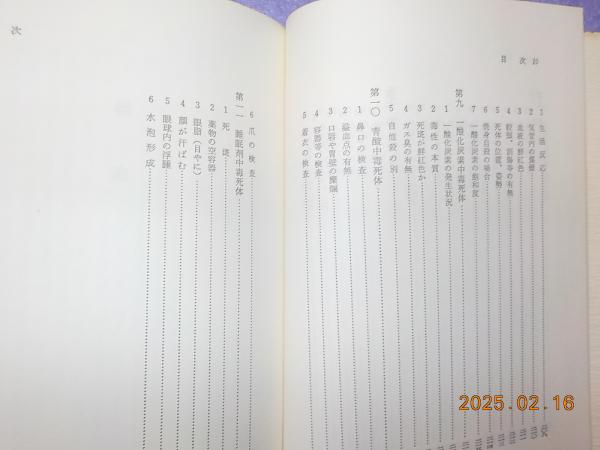 目次
1 生活反応
2 気管内の煤煙
3 血液の鮮紅色
4 骸型、損傷等の有無
5 死体の位置、姿勢
6 焼身自殺の場合
7 一酸化炭素の飽和度
第九 一酸化炭素中毒死体
1 一酸化炭素の発生状況
2 毒性の本質
3 死斑が鮮紅色か
4 ガス臭の有無
5 自他殺の別
第一〇 青酸中毒死体
1 鼻口の検査
2 溢血点の有無
3 口唇や胃壁の糜爛
4 容器等の検査
5 着衣の検査
6 爪の検査
第一一 睡眠剤中毒死体
1 死斑
2 薬物の空容器
3 眼脂（目やに）
4 顔が汗ばむ
5 眼球内の浮腫
6 水泡形成
次
2025.02.16